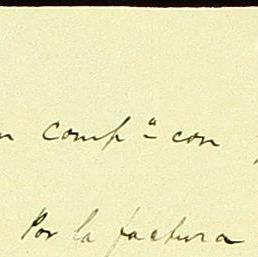 n compª con
Por la factura